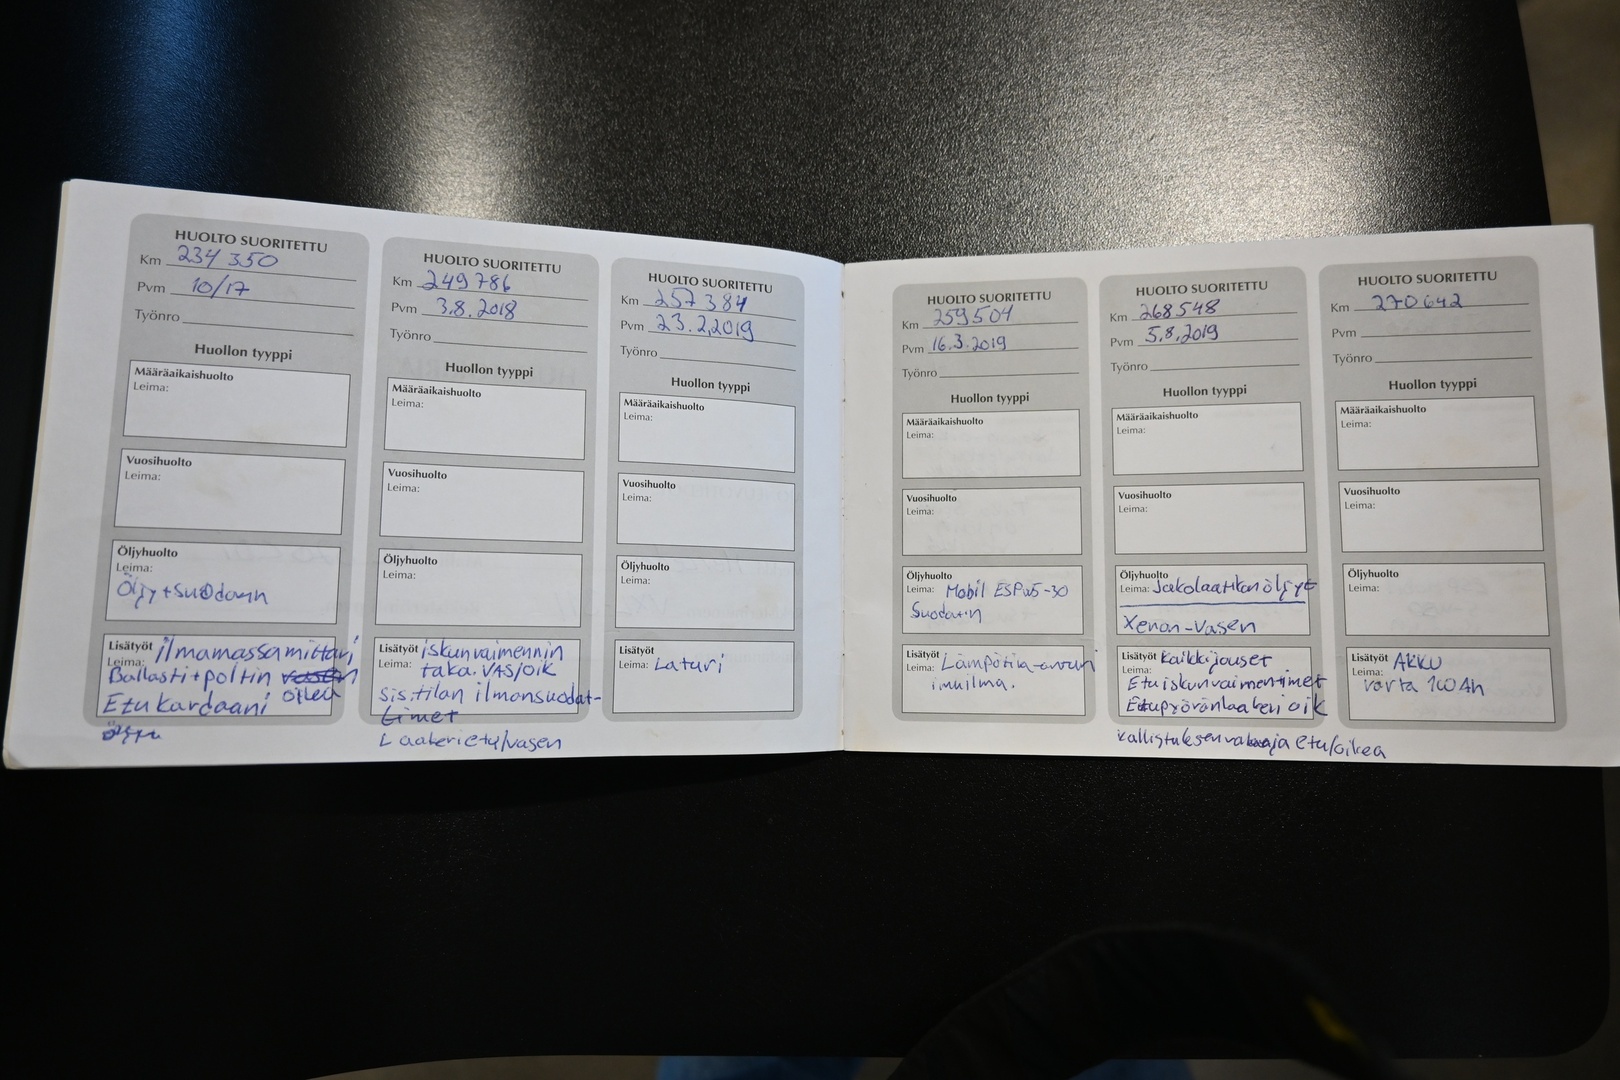 HUOLTO SUORITETTU
Km 234 350
Pvm 10/17
Työnro
Huollon tyyppi
Määräaikaishuolto
Leima:
Vuosihuolto
Leima:
Öljyhuolto
Leima:
Öljy+suodatin
Lisätyöt ilmamassamittari
Leima:
Ballasti+poltin vasen
oikea
Etukardaani
HUOLTO SUORITETTU
Km 249 786
Pvm 3.8.2018
Työnro
Huollon tyyppi
Määräaikaishuolto
Leima:
Vuosihuolto
Leima:
Öljyhuolto
Leima:
Lisätyöt iskunvaimennin
Leima: taka. VAS/OIK
Sis.tilan ilmansuodat-
timet
Laakeri etu/vasen
HUOLTO SUORITETTU
Km 257 384
Pvm 23.2.2019
Työnro
Huollon tyyppi
Määräaikaishuolto
Leima:
Vuosihuolto
Leima:
Öljyhuolto
Leima:
Lisätyöt
Leima: Laturi
HUOLTO SUORITETTU
Km 259504
Pvm 16.3.2019
Työnro
Huollon tyyppi
Määräaikaishuolto
Leima:
Vuosihuolto
Leima:
Öljyhuolto
Leima: Mobil ESP W5-30
Suodatin
Lisätyöt
Leima: Lämpötila-anturi
imuilma.
HUOLTO SUORITETTU
Km 268548
Pvm 5.8.2019
Työnro
Huollon tyyppi
Määräaikaishuolto
Leima:
Vuosihuolto
Leima:
Öljyhuolto
Leima: Jakolaatikon öljyt
Xenon-Vasen
Lisätyöt Kaikki jouset
Leima:
Etuiskunvaimentimet
Etupyöränlaakeri oik
kallistuksenvakaaja etu/oikea
HUOLTO SUORITETTU
Km 270642
Pvm
Työnro
Huollon tyyppi
Määräaikaishuolto
Leima:
Vuosihuolto
Leima:
Öljyhuolto
Leima:
Lisätyöt AKKU
Leima: varta 100Ah